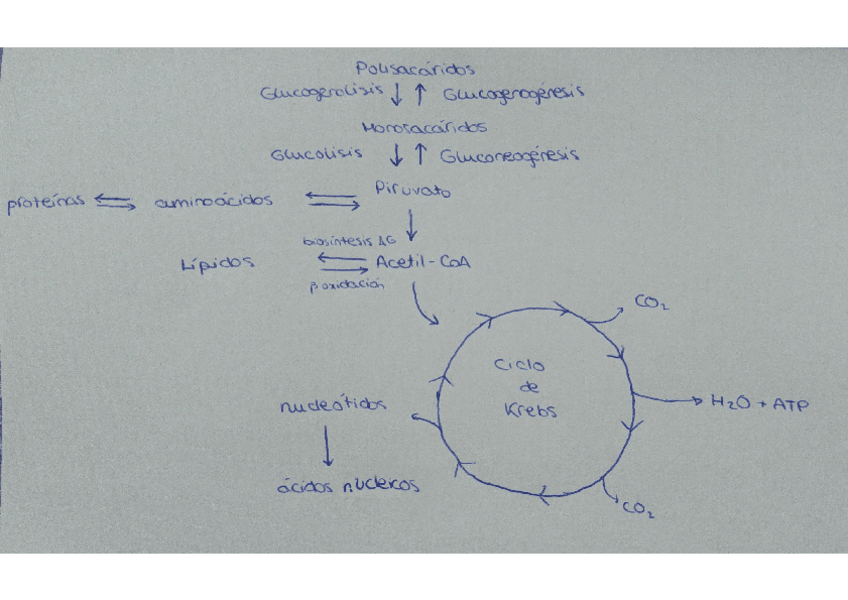 Polisacáridos
Glucogenolisis ↓ ↑ Glucogenogénesis
Monosacáridos
Glucolisis ↓ ↑ Gluconeogénesis
proteínas ⇆ aminoácidos ⇆ Piruvato
biosíntesis AG
Lípidos ⇆ Acetil-CoA
β oxidación
CO₂
Ciclo
de
Krebs
H₂O + ATP
nucleótidos
ácidos nucleicos
CO₂